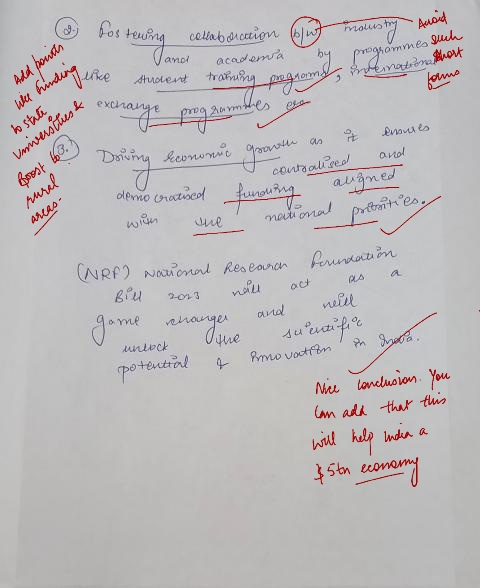 2. Fostering collaboration b/w industry
and academia by programmes
like student training programs, international
exchange programmes etc
3. Driving economic growth as it ensures
centralised and
democratised funding aligned
with the national priorities.
(NRF) National Research Foundation
Bill 2023 will act as a
game changer and will
unlock the scientific
potential & innovation in India.
Avoid
such
short
forms
Add points
like funding
to state
universities &
Boost to
rural
areas.
Nice conclusion. You
can add that this
will help India a
$5tn economy